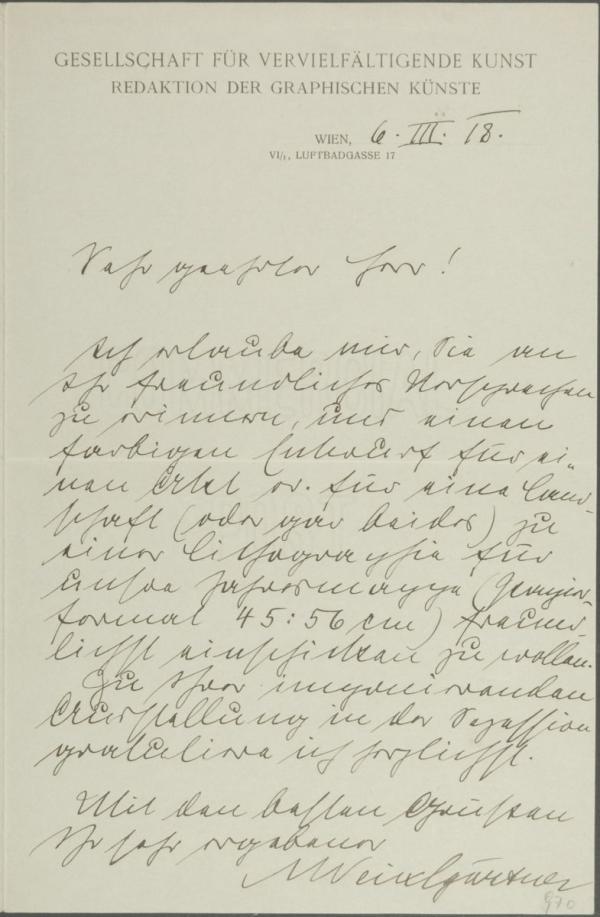 GESELLSCHAFT FÜR VERVIELFÄLTIGENDE KUNST
REDAKTION DER GRAPHISCHEN KÜNSTE
WIEN, 6. III. 18.
VI/1, LUFTBADGASSE 17
Sehr geehrter Herr!
Ich erlaube mir, Sie an
Ihr freundliches Versprechen
zu erinnern, uns einen
farbigen Entwurf für ei„
nen Akt od. für eine Land„
schaft (oder gar beides) zu
einer Lithographie für
unsre Jahresmappe (Papier„
format 45:56 cm) freund„
lichst einschicken zu wollen.
Zu Ihrer imponierenden
Ausstellung in der Sezession
gratuliere ich herzlichst.
Mit den besten Grüßen
Ihr sehr ergebener
AWeixlgärtner
970